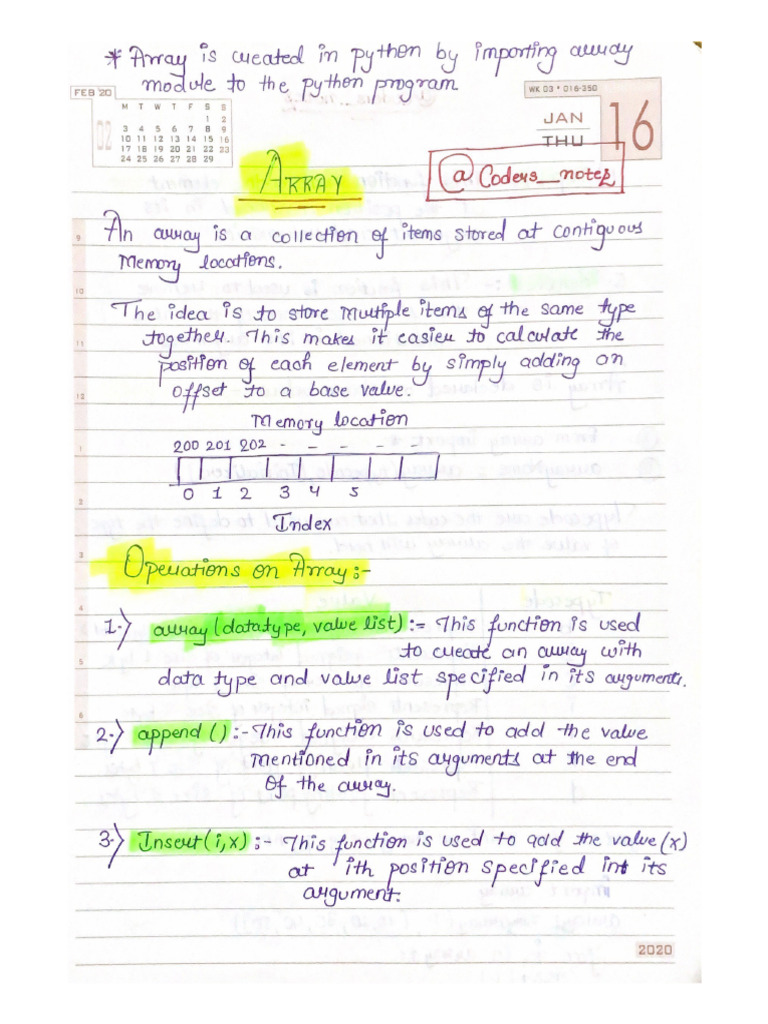 * Array is created in python by importing array
module to the python program
FEB '20
M T W T F S S
1 2
3 4 5 6 7 8 9
10 11 12 13 14 15 16
17 18 19 20 21 22 23
24 25 26 27 28 29
02
WK 03 • 016-350
JAN
THU
16
ARRAY
@Coders_notes
An array is a collection of items stored at contiguous
Memory locations.
The idea is to store multiple items of the same type
together. This makes it easier to calculate the
position of each element by simply adding an
offset to a base value.
Memory location
200 201 202 - - - - -
0 1 2 3 4 5
Index
Operations on Array:-
1.) array(datatype, value list) :- This function is used
to create an array with
data type and value list specified in its arguments.
2.) append() :- This function is used to add the value
mentioned in its arguments at the end
of the array.
3.) Insert(i,x) :- This function is used to add the value(x)
at ith position specified int its
argument.
9
10
11
12
1
2
3
4
5
6
2020